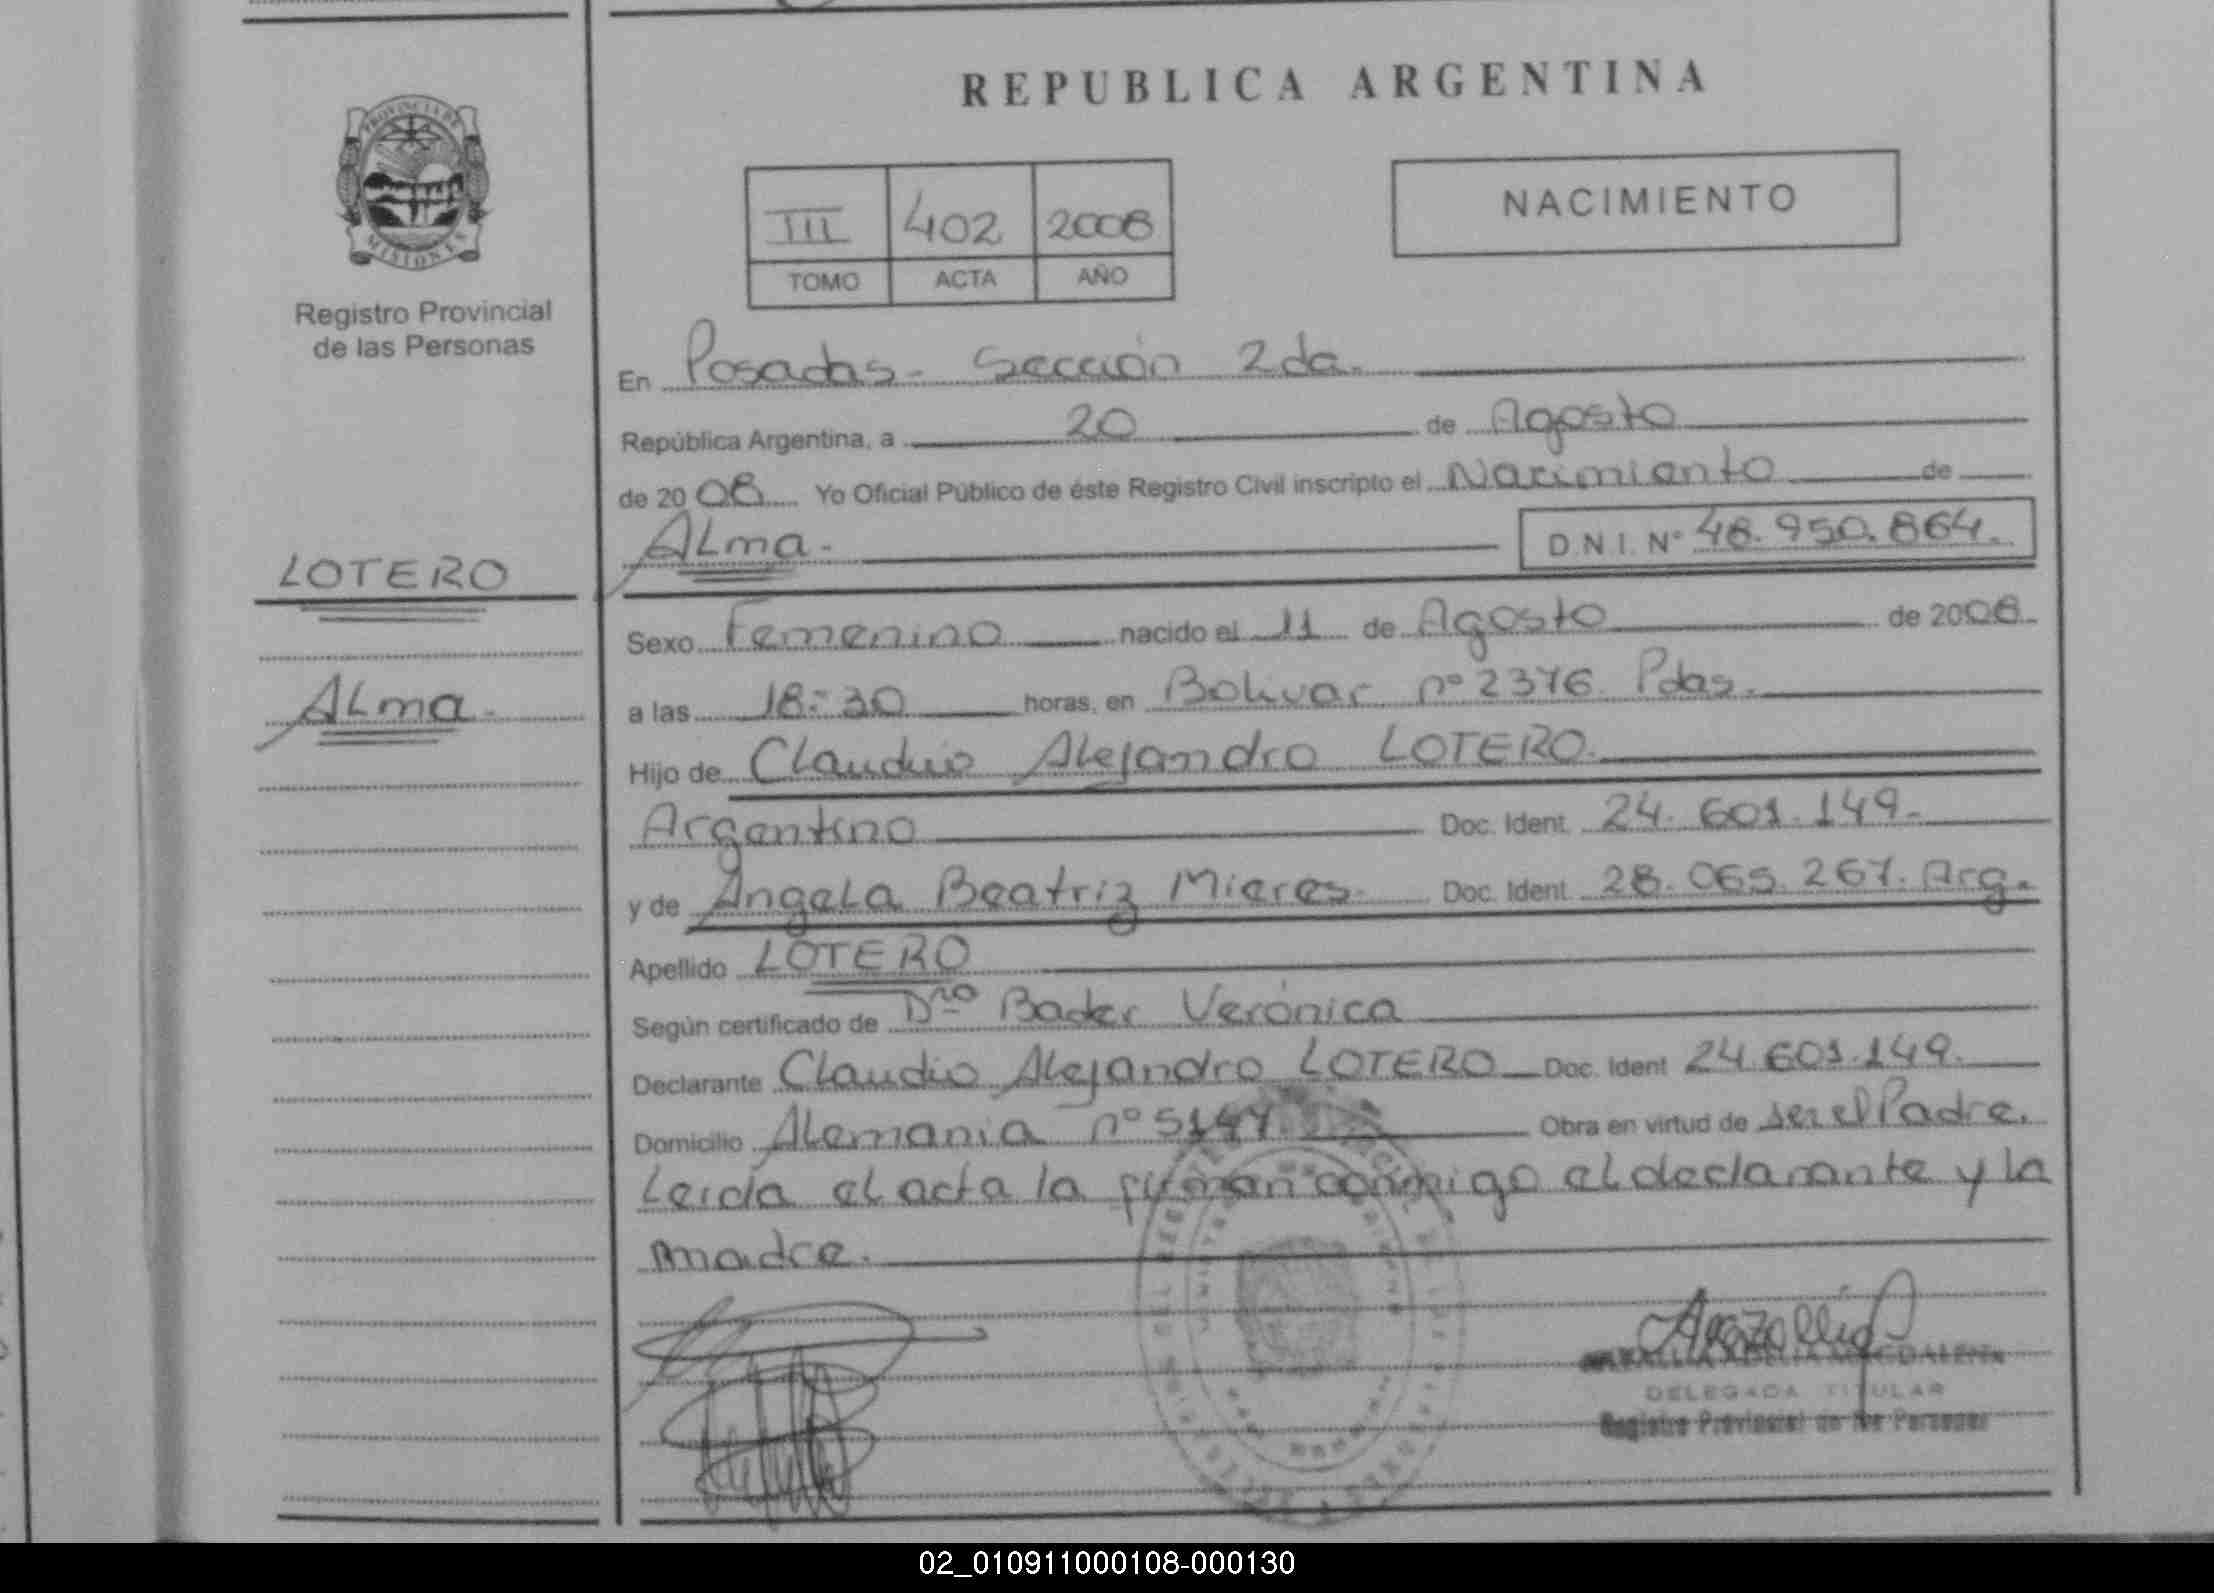 REPUBLICA ARGENTINA
PROVINCIA DE
MISIONES
Registro Provincial
de las Personas
III 402 2008
TOMO ACTA AÑO
NACIMIENTO
En Posadas - Sección 2da.
República Argentina, a 20 de Agosto
de 2008 Yo Oficial Público de éste Registro Civil inscripto el Nacimiento de
ALma.- D.N.I. N° 48.950.864.
LOTERO
ALma.-
Sexo Femenino nacido el 11 de Agosto de 2008
a las 18:30 horas, en Bolivar n° 2376 Pdas.
Hijo de Claudio Alejandro LOTERO.
Argentino Doc. Ident. 24.601.149.-
y de Angela Beatriz Mieres.- Doc. Ident. 28.065.267. Arg.
Apellido LOTERO
Según certificado de Dra Bader Verónica
Declarante Claudio Alejandro LOTERO Doc. Ident 24.601.149.
Domicilio Alemania n° 5147 Obra en virtud de ser el Padre.
Leida el acta la firman conmigo el declarante y la
madre.
DELEGADA TITULAR
Registro Provincial de las Personas
02_010911000108-000130